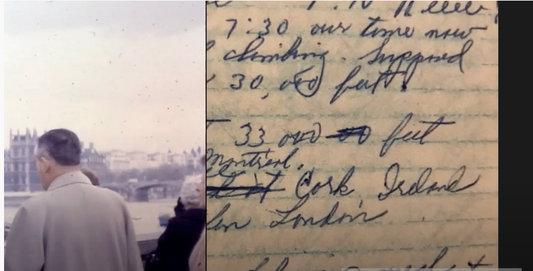 7:30 our time now
climbing. Supposed
30,000 feet!
33 000 feet
Montreal,
Cork, Ireland
London